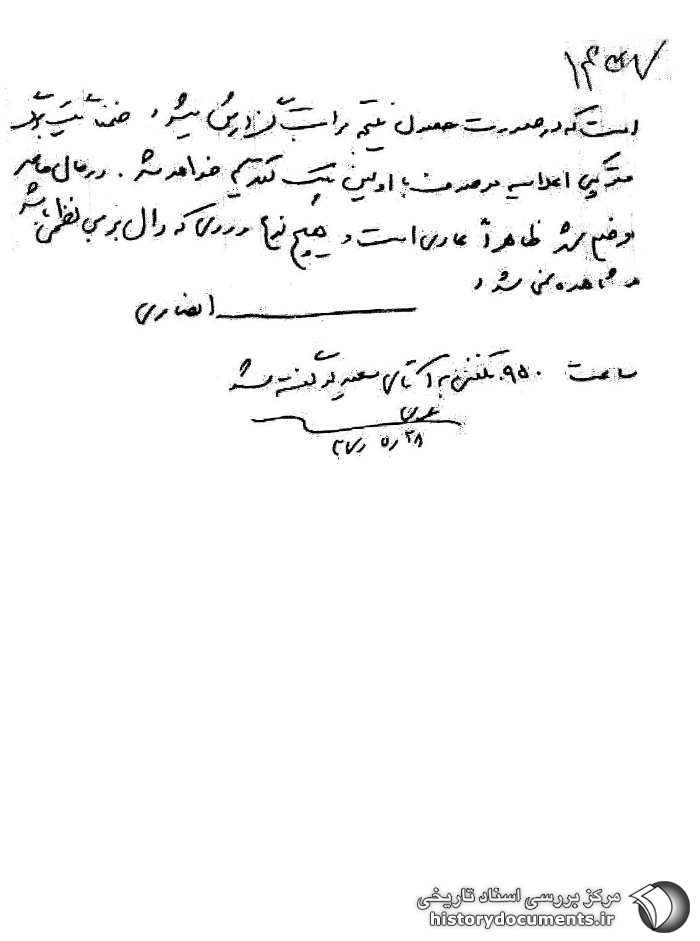 است که در صورت حصول نتیجه مراتب گزارش میشود، ضمناً یک برگ
اعلامیه موصوف با اولین پیک تقدیم خواهد شد. در حال حاضر
وضع شهر ظاهراً عادی است و هیچ نوع موردی که دال بر بی نظمی باشد
مشاهده نمی شود،
انصاری
ساعت ۹۵۰ تلفنی به آقای سعید گفته شد
مرکز بررسی اسناد تاریخی
historydocuments.ir